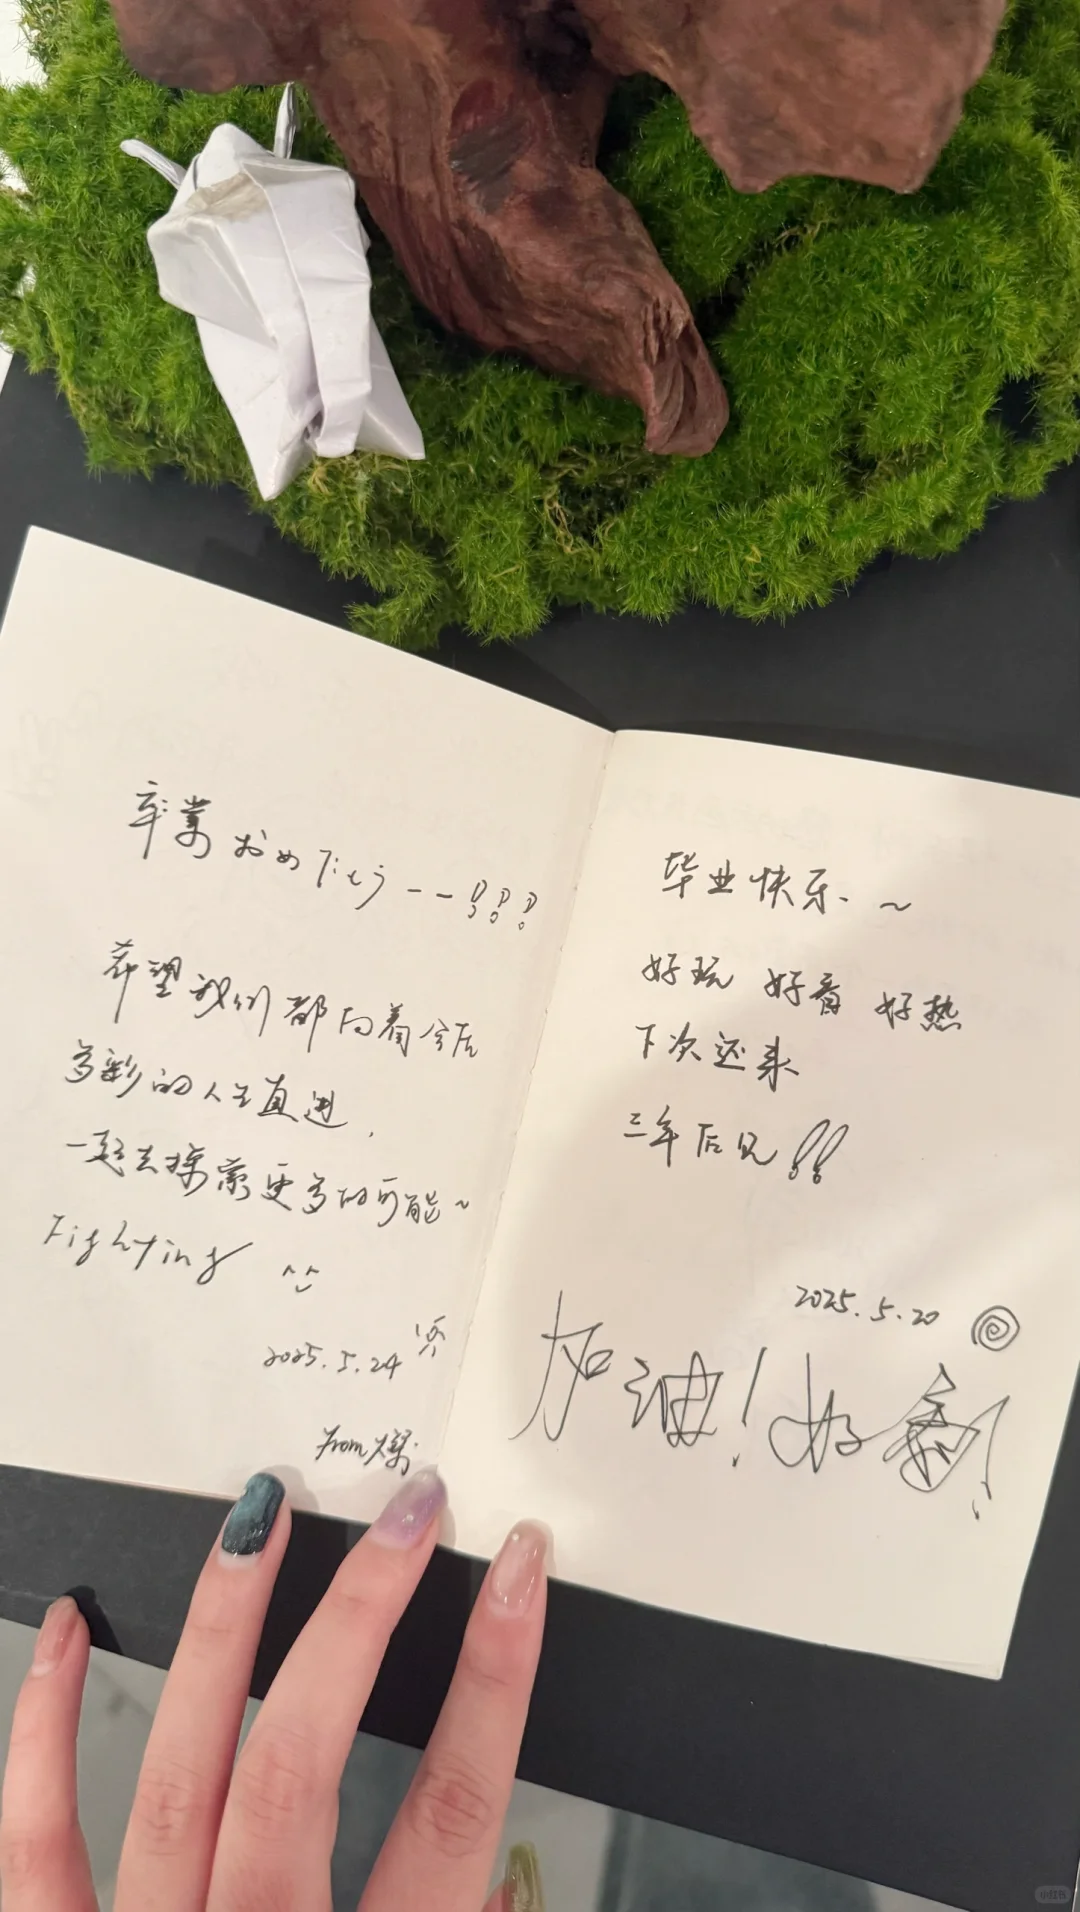 卒業おめでとうーー!!!
希望我们都向着今后
多彩的人生直进，
一起去探索更多的可能~
Fighting ^^
2025.5.24
From 燦
毕业快乐. ~
好玩 好看 好热
下次还来
三年后见!!
2025.5.20
加油! 好
小红书